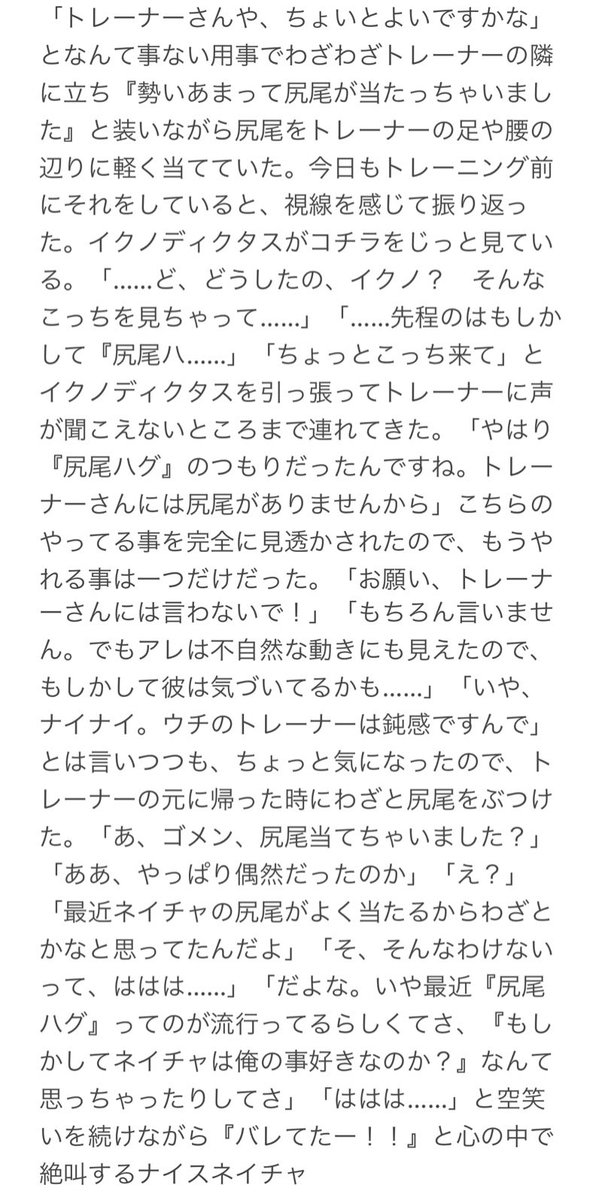 「トレーナーさんや、ちょいとよいですかな」
となんて事ない用事でわざわざトレーナーの隣
に立ち『勢いあまって尻尾が当たっちゃいまし
た』と装いながら尻尾をトレーナーの足や腰の
辺りに軽く当てていた。今日もトレーニング前
にそれをしていると、視線を感じて振り返っ
た。イクノディクタスがコチラをじっと見てい
る。「……ど、どうしたの、イクノ？　そんな
こっちを見ちゃって……」「……先程のはもしか
して『尻尾ハ……」「ちょっとこっち来て」と
イクノディクタスを引っ張ってトレーナーに声
が聞こえないところまで連れてきた。「やはり
『尻尾ハグ』のつもりだったんですね。トレー
ナーさんには尻尾がありませんから」こちらの
やってる事を完全に見透かされたので、もうや
れる事は一つだけだった。「お願い、トレーナ
ーさんには言わないで！」「もちろん言いませ
ん。でもアレは不自然な動きにも見えたので、
もしかして彼は気づいてるかも……」「いや、
ナイナイ。ウチのトレーナーは鈍感ですんで」
とは言いつつも、ちょっと気になったので、ト
レーナーの元に帰った時にわざと尻尾をぶつけ
た。「あ、ゴメン、尻尾当てちゃいました？」
「ああ、やっぱり偶然だったのか」「え？」
「最近ネイチャの尻尾がよく当たるからわざと
かなと思ってたんだよ」「そ、そんなわけない
って、ははは……」「だよな。いや最近『尻尾
ハグ』ってのが流行ってるらしくてさ、『もし
かしてネイチャは俺の事好きなのか？』なんて
思っちゃったりしてさ」「ははは……」と空笑
いを続けながら『バレてたー！！』と心の中で
絶叫するナイスネイチャ